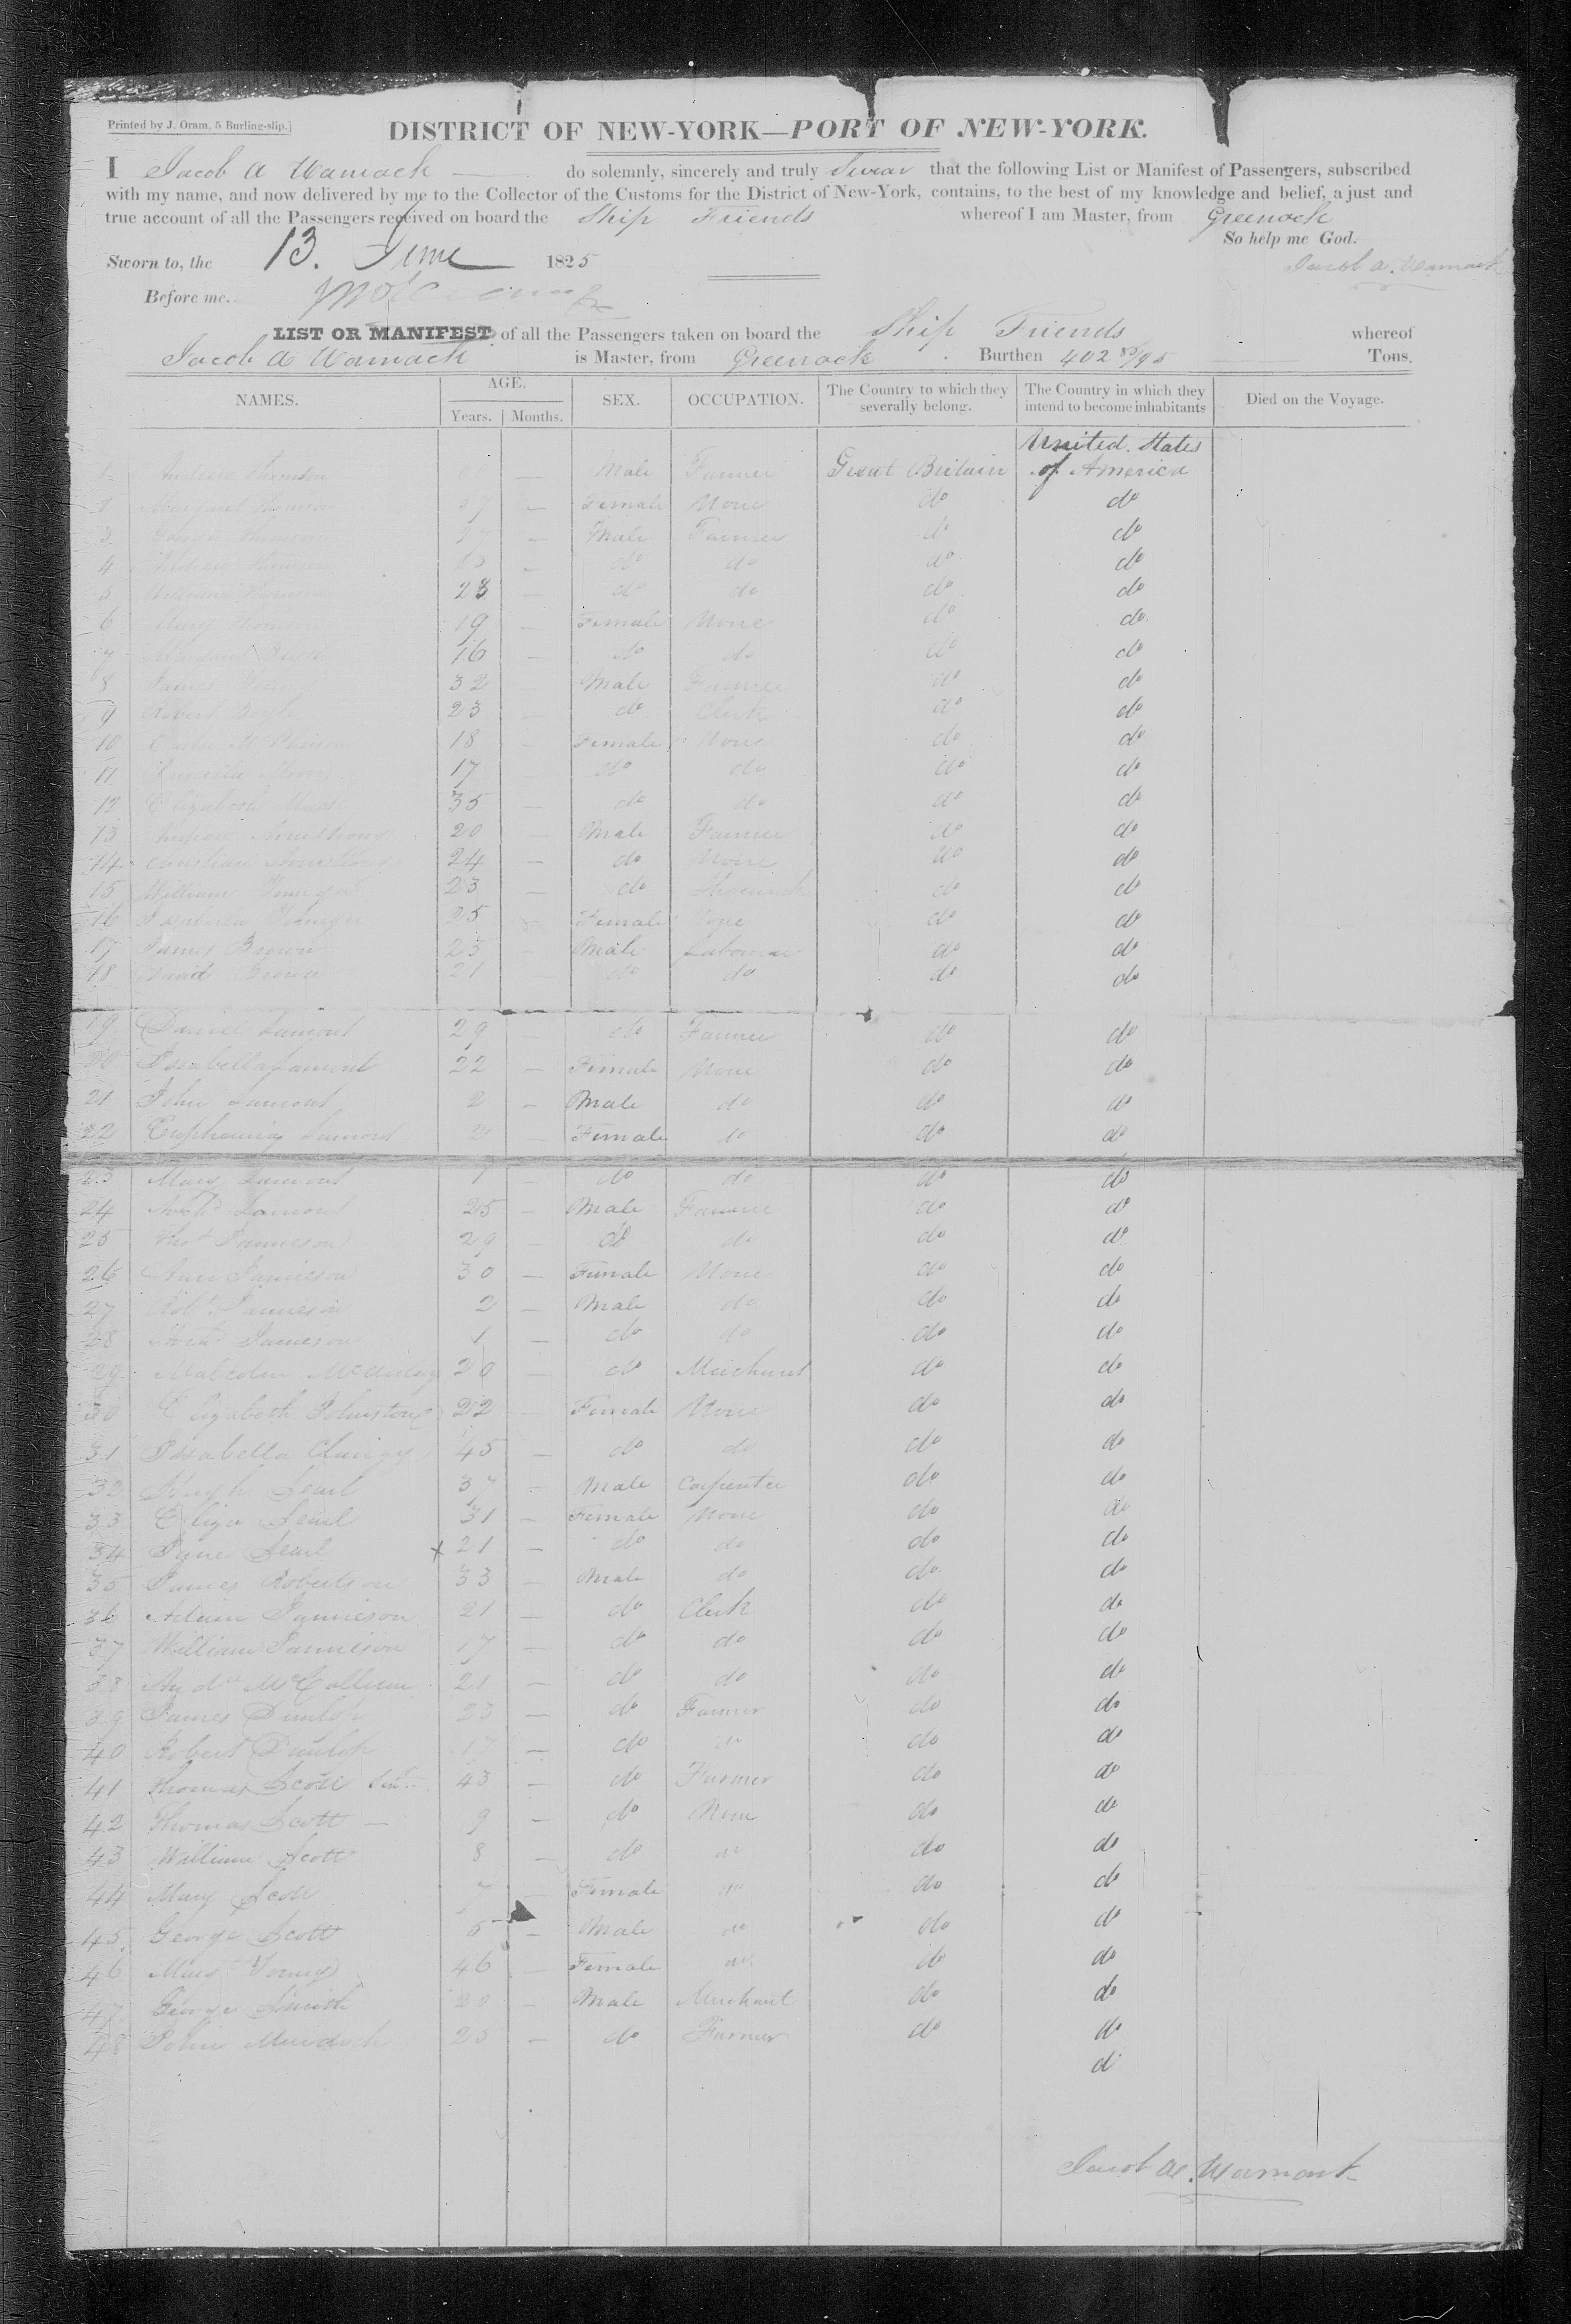 Printed by J. Oram, 5 Burling-slip.]
DISTRICT OF NEW-YORK—PORT OF NEW-YORK.
I Jacob A Wamack do solemnly, sincerely and truly Swear that the following List or Manifest of Passengers, subscribed
with my name, and now delivered by me to the Collector of the Customs for the District of New-York, contains, to the best of my knowledge and belief, a just and
true account of all the Passengers received on board the Ship Friends whereof I am Master, from Greenock
So help me God.
Sworn to, the 13. June 1825
Jacob A. Wamack
Before me,
LIST OR MANIFEST of all the Passengers taken on board the Ship Friends whereof
Jacob A Wamack is Master, from Greenock Burthen 402 85/95 Tons.
NAMES. AGE. Years. Months. SEX. OCCUPATION. The Country to which they severally belong. The Country in which they intend to become inhabitants Died on the Voyage.
United States
1 Andrew Thomson — Male Farmer Great Britain of America
2 Margaret Thomson 57 — Female None do do
3 George Thomson 27 — Male Farmer do do
4 Thomson — do do do do
5 William Thomson 23 — do do do do
6 Mary Thomson 19 — Female None do do
7 16 — do do do do
8 James Young 32 — Male Farmer do do
9 Robert Boyle 23 — do Clerk do do
10 18 — Female None do do
11 17 — do do do do
12 Elizabeth 35 — do do do do
13 Armstrong 20 — Male Farmer do do
14 Christian Armstrong 24 — do None do do
15 William Younger 23 — do do do
16 Issabella Younger 25 — Female None do do
17 James Brown 25 — Male Labourer do do
18 David Brown 21 — do do do do
19 Daniel Lamont 29 — do Farmer do do
20 Issabella Lamont 22 — Female None do do
21 John Lamont 2 — Male do do do
22 Euphemia Lamont 2 — Female do do do
23 Mary Lamont 1 — do do do do
24 Archd Lamont 25 — Male Farmer do do
25 Thos Jamieson 29 — do do do do
26 Ann Jamieson 30 — Female None do do
27 Robt Jamieson 2 — Male do do do
28 Archd Jamieson 1 — do do do do
29 Malcolm McAulay 20 — do Merchant do do
30 Elizabeth Johnstone 22 — Female None do do
31 Issabella 45 — do do do do
32 Hugh Searl 37 — Male Carpenter do do
33 Eliza Searl 31 — Female None do do
34 Jane Searl x 21 — do do do do
35 James Robertson 33 — Male do do do
36 Adam Jamieson 21 — do Clerk do do
37 William Jamieson 17 — do do do do
38 Andw McCallum 21 — do do do do
39 James Dunlop 23 — do Farmer do do
40 Robert Dunlop 17 — do do do do
41 Thomas Scott Senr 43 — do Farmer do do
42 Thomas Scott — 9 — do None do do
43 William Scott 8 — do do do do
44 Mary Scott 7 — Female do do do
45 George Scott 5 — Male do do do
46 Mary Young 46 — Female do do do
47 George Smith 20 — Male Merchant do do
48 John Murdoch 25 — do Farmer do do
do
Jacob A. Wamack